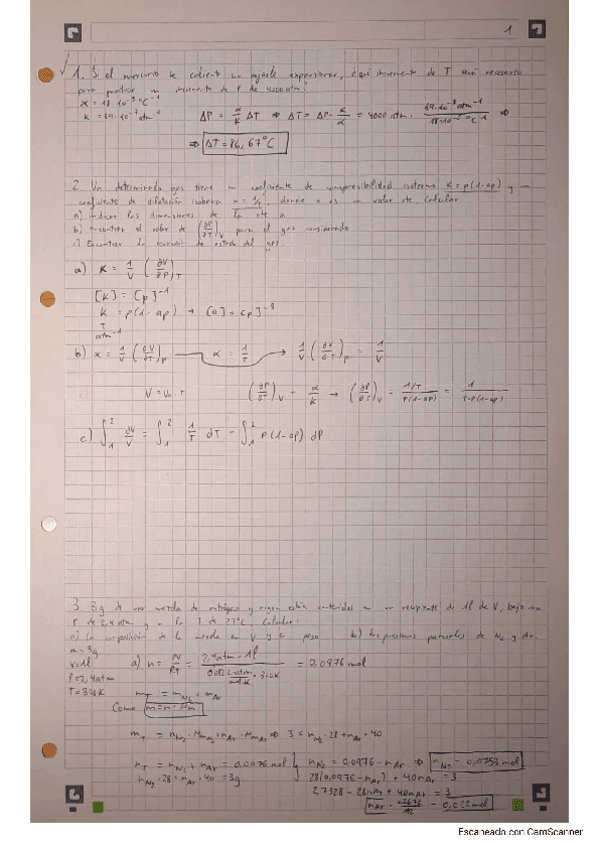 1
1. Si el mercurio se calienta sin dejarle expansionar, ¿qué incremento de T será necesario
para producir un incremento de P de 4000 atm?
α = 18·10⁻⁵ °C⁻¹
K = 39·10⁻⁷ atm⁻¹
ΔP = α/K ΔT ⇒ ΔT = ΔP · K/α = 4000 atm · 39·10⁻⁷ atm⁻¹ / 18·10⁻⁵ °C⁻¹ ⇒
⇒ ΔT = 86,67°C
2. Un determinado gas tiene un coeficiente de compresibilidad isotermo K = p(1-ap) y un
coeficiente de dilatación isobara α = 1/T, donde a es un
a) indicar las dimensiones de la cte a
b) encontrar el valor de (∂P/∂T)V para el gas considerado
c) Encontrar la ecuación de estado del gas.
a) K = 1/V (∂V/∂P)T
[K] = [p]⁻¹
K = p(1-ap) → [a] = [p]⁻³
atm⁻¹
b) α = 1/V (∂V/∂T)p α = 1/T → 1/V (∂V/∂T)p = 1/V
V = V₀ · T (∂P/∂T)V = α/K → (∂P/∂T)V = 1/T / P(1-aP) = 1 / T·P(1-aP)
c) ∫₁² ∂V/V = ∫₁² 1/T dT - ∫₁² P(1-aP) dP
3. 3g de una mezcla de nitrógeno y argón están contenidos en un recipiente de 1l de V, bajo una
P de 2,4 atm y a la T de 27°C. Calcular:
a) La composición de la mezcla en V y en peso b) Las presiones parciales de N₂ y Ar.
m = 3g
V = 1l
P = 2,4 atm
T = 300K
a) n = PV/RT = 2,4atm · 1l / 0,082 l·atm/mol·K · 300K = 0,0976 mol
mT = mN₂ + mAr
Como m = n · Mm
mT = nN₂ · MmN₂ + nAr · MmAr ⇒ 3 = nN₂ · 28 + nAr · 40
nT = nN₂ + nAr = 0,0976 mol } nN₂ = 0,0976 - nAr ⇒ nN₂ = 0,0753 mol
nN₂ · 28 + nAr · 40 = 3g 28(0,0976 - nAr) + 40nAr = 3
2,7328 - 28nAr + 40nAr = 3
nAr = 0,2672/12 = 0,022 mol
Escaneado con CamScanner